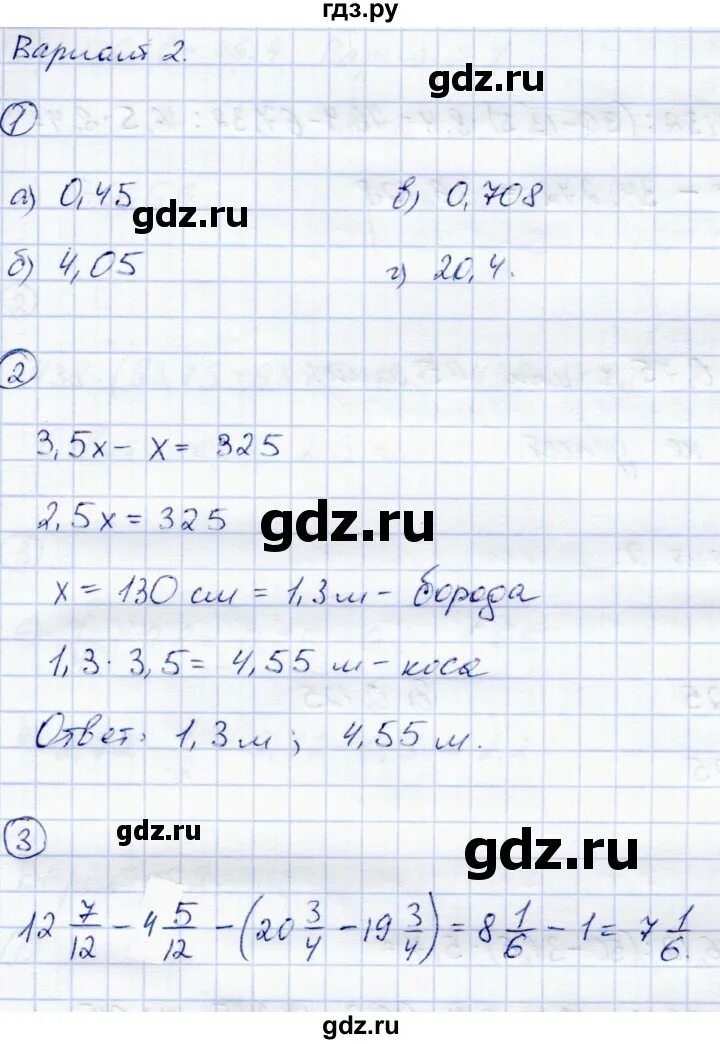 гдз.ру
Вариант 2.
gdz.ru
1
а) 0,45 в) 0,708
gdz.ru
б) 4,05 г) 20,4.
2
3,5x - x = 325
2,5x = 325
gdz.ru
x = 130 см = 1,3 м - борода
1,3 · 3,5 = 4,55 м - коса
Ответ: 1,3 м; 4,55 м.
3
gdz.ru
gdz.ru
12 7/12 - 4 5/12 - (20 3/4 - 19 3/4) = 8 1/6 - 1 = 7 1/6.
gdz.ru